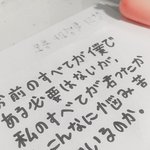 お前のすべてが僕で
ある必要はないが、
私のすべてが君だか
こんなに悩み苦
いるのか。